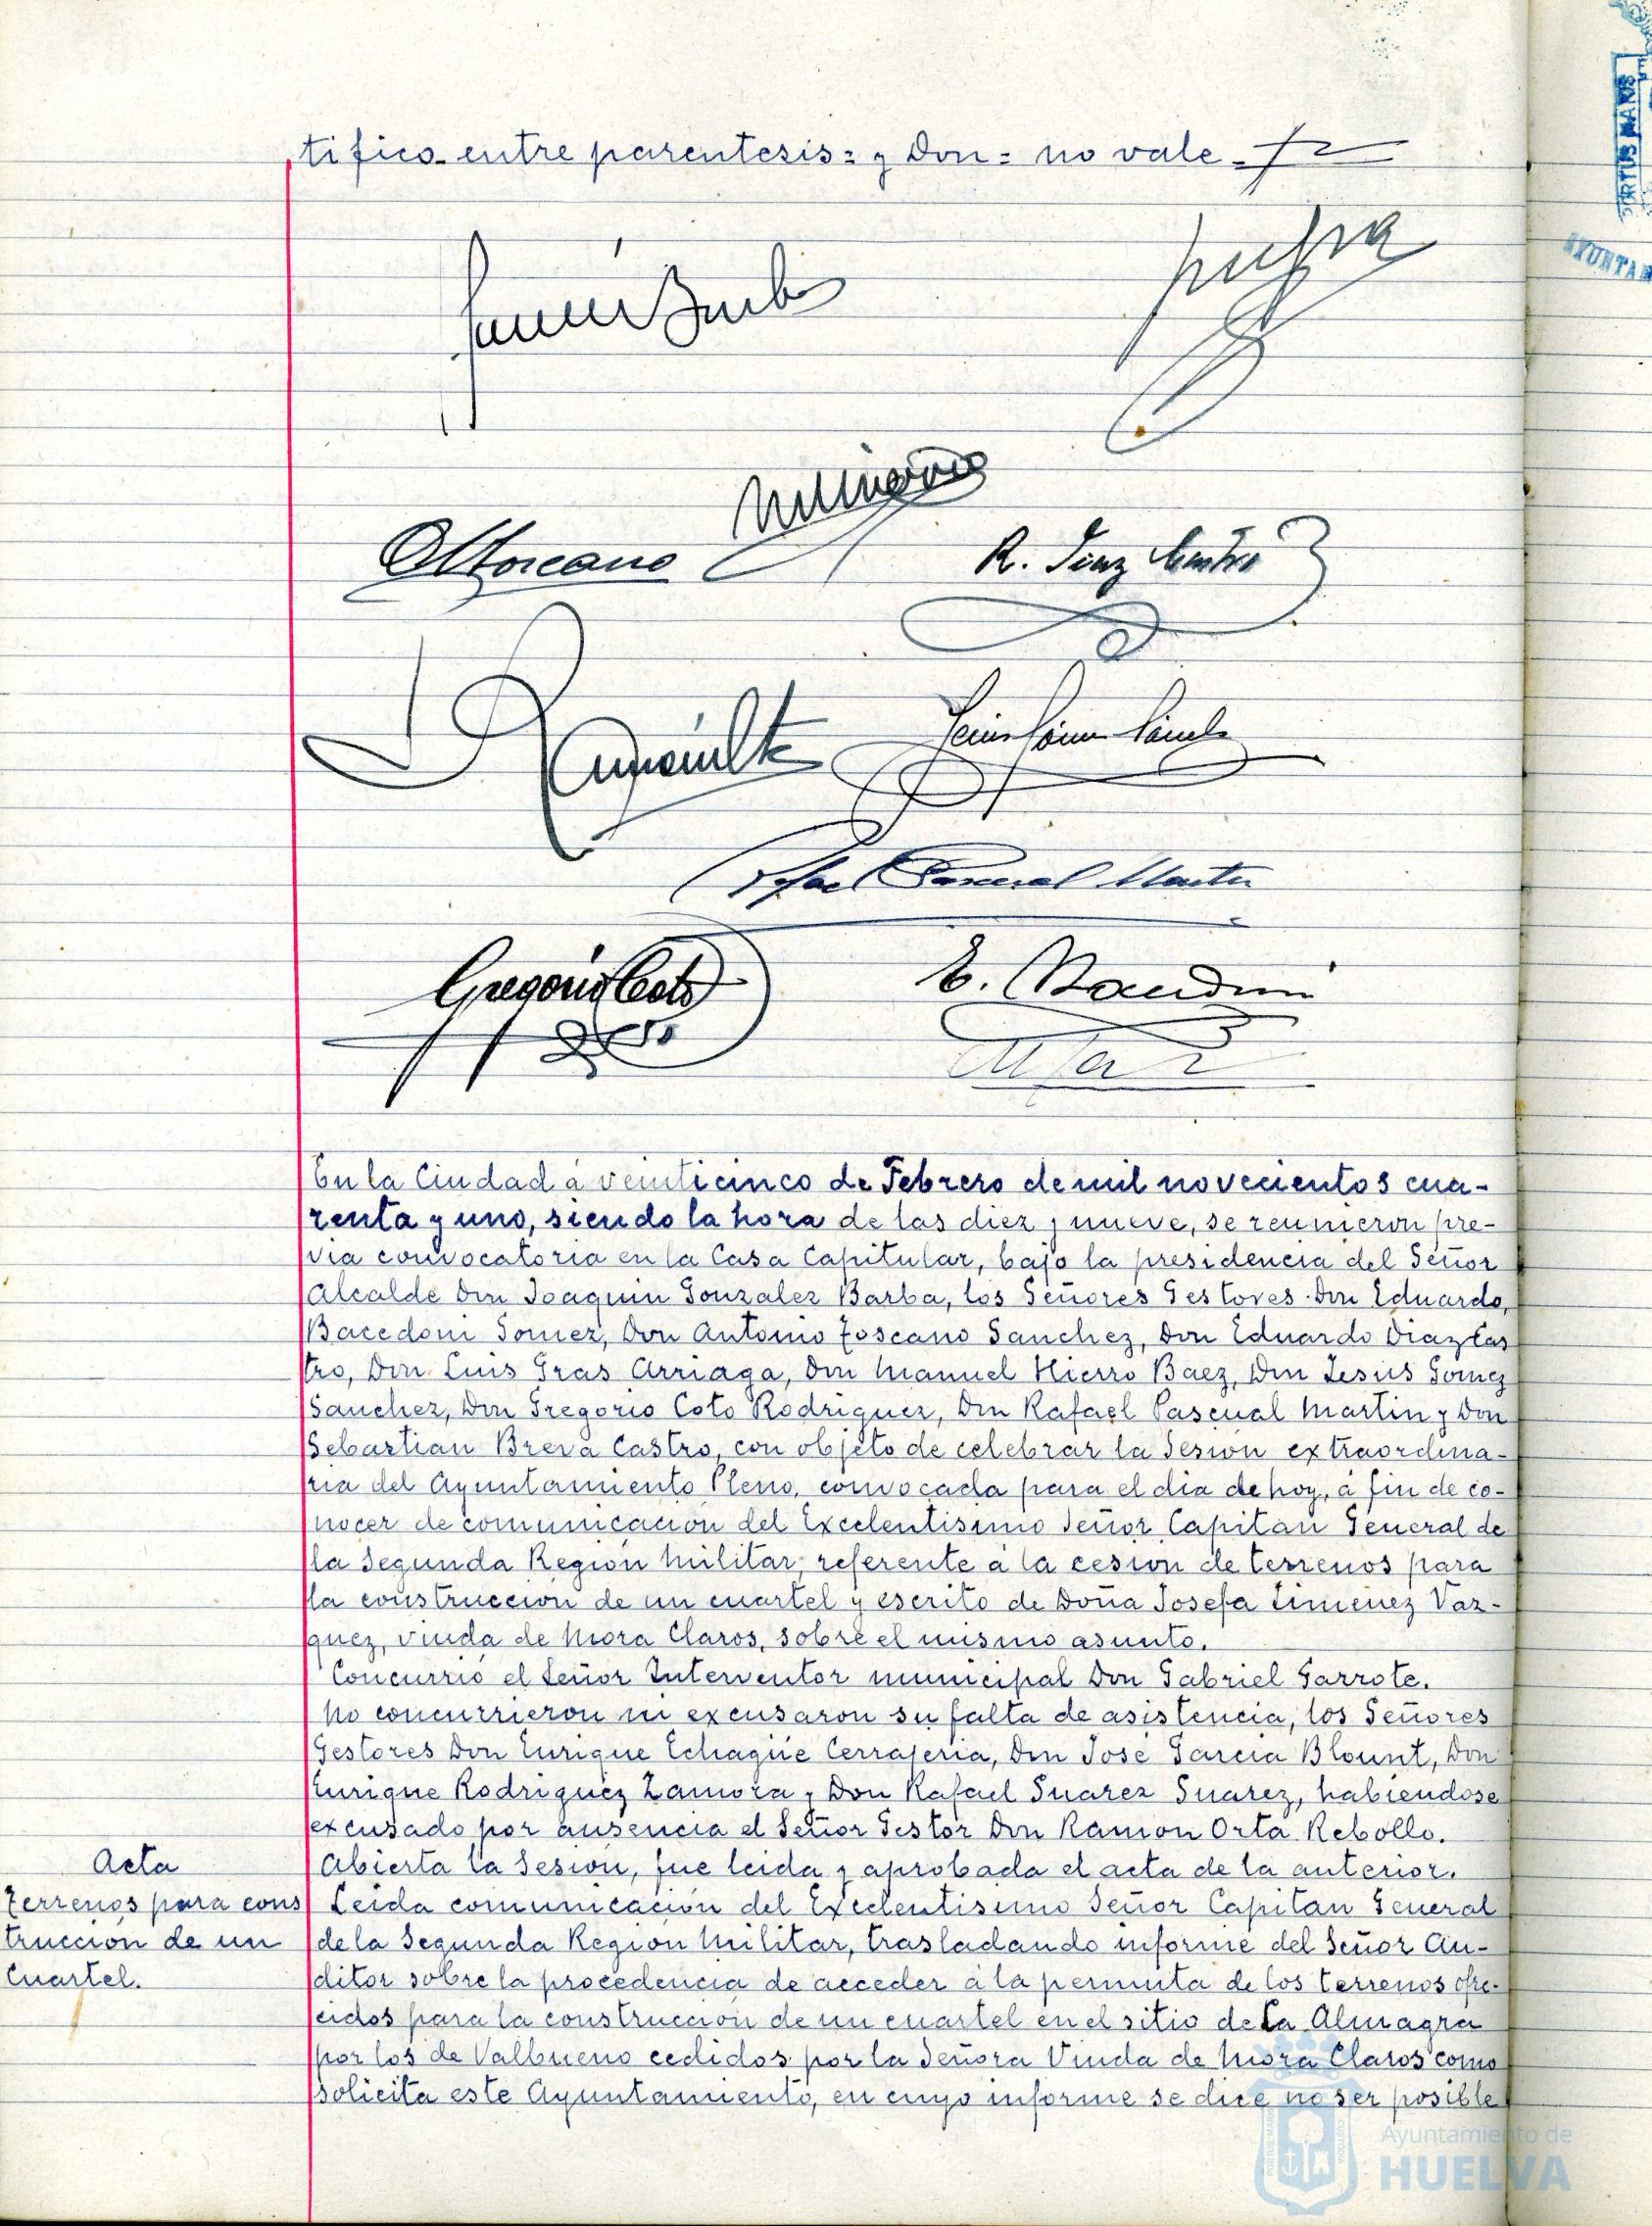 tifico-entre parentesis=y Don= no vale-
R. Diaz Castro
Rafael Pascual Martin
Gregorio Coto
En la Ciudad á veinticinco de Febrero de mil novecientos cua-
renta y uno, siendo la hora de las diez y nueve, se reunieron pre-
via convocatoria en la Casa Capitular, bajo la presidencia del Señor
Alcalde Don Joaquin Gonzalez Barba, los Señores Gestores Don Eduardo
Bacedoni Gomez, Don Antonio Toscano Sanchez, Don Eduardo Diaz Cas
tro, Don Luis Gras Arriaga, Don Manuel Hierro Baez, Don Jesus Gomez
Sanchez, Don Gregorio Coto Rodriguez, Don Rafael Pascual Martin y Don
Sebastian Breva Castro, con objeto de celebrar la Sesion extraordina-
ria del Ayuntamiento Pleno, convocada para el dia de hoy, á fin de co-
nocer de comunicación del Excelentisimo Señor Capitan General de
la Segunda Region Militar, referente á la cesion de terrenos para
la construccion de un cuartel y escrito de Doña Josefa Jimenez Vaz-
quez, viuda de Mora Claros, sobre el mismo asunto.
Concurrió el Señor Interventor municipal Don Gabriel Garrote.
No concurrieron ni excusaron su falta de asistencia, los Señores
Gestores Don Enrique Echagüe Cerrajeria, Don José Garcia Blount, Don
Enrique Rodriguez Zamora y Don Rafael Suarez Suarez, habiendose
excusado por ausencia el Señor Gestor Don Ramon Orta Rebollo.
Acta
Abierta la Sesion, fue leida y aprobada el acta de la anterior.
Terrenos para cons
truccion de un
Cuartel.
Leida comunicación del Excelentisimo Señor Capitan General
de la Segunda Region Militar, trasladando informe del Señor Au-
ditor sobre la procedencia de acceder á la permuta de los terrenos ofre-
cidos para la construccion de un cuartel en el sitio de La Almagra
por los de Valbueno cedidos por la Señora Viuda de Mora Claros como
solicita este Ayuntamiento, en cuyo informe se dice no ser posible
PORTUS MARIS
AYUNTAM
Ayuntamiento de
HUELVA